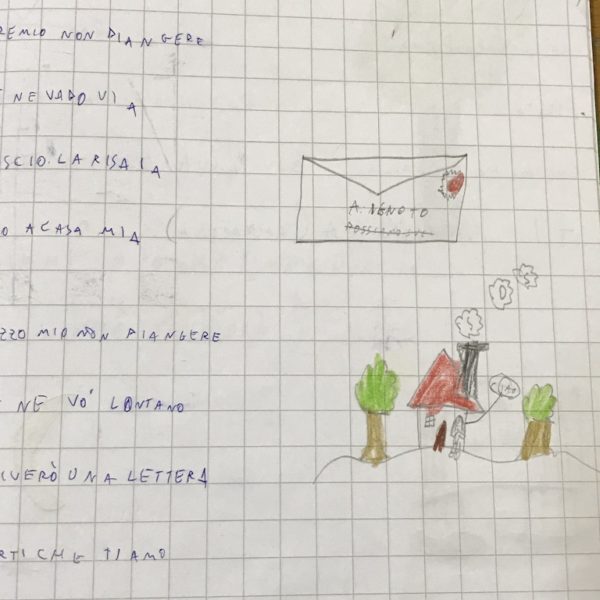 REMIO NON PIANGERE
NE VADO VIA
SCIO LA RISAIA
O A CASA MIA
A. NENOTO
ZZO MIO NON PIANGERE
NE VÒ LONTANO
IVERÒ UNA LETTERA
RTI CHE TI AMO
S
O
S
CIAO